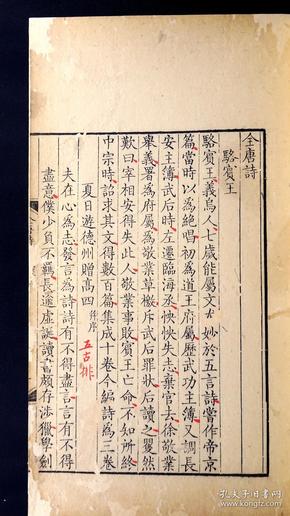 全唐詩
駱賓王
駱賓王義烏人七歲能屬文尤妙於五言詩嘗作帝京
篇當時以為絕唱初為道王府屬歷武功主簿又調長
安主簿武后時左遷臨海丞怏怏失志棄官去徐敬業
舉義署為府屬為敬業草檄斥武后罪狀后讀之矍然
歎曰宰相安得失此人敬業事敗賓王亡命不知所終
中宗時詔求其文得數百篇集成十卷今編詩為三卷
夏日遊德州贈高四 并序
五古排
夫在心為志發言為詩詩有不得盡言言有不得
盡意僕少負不羈長逾虛誕讀書頗存涉獵學劍